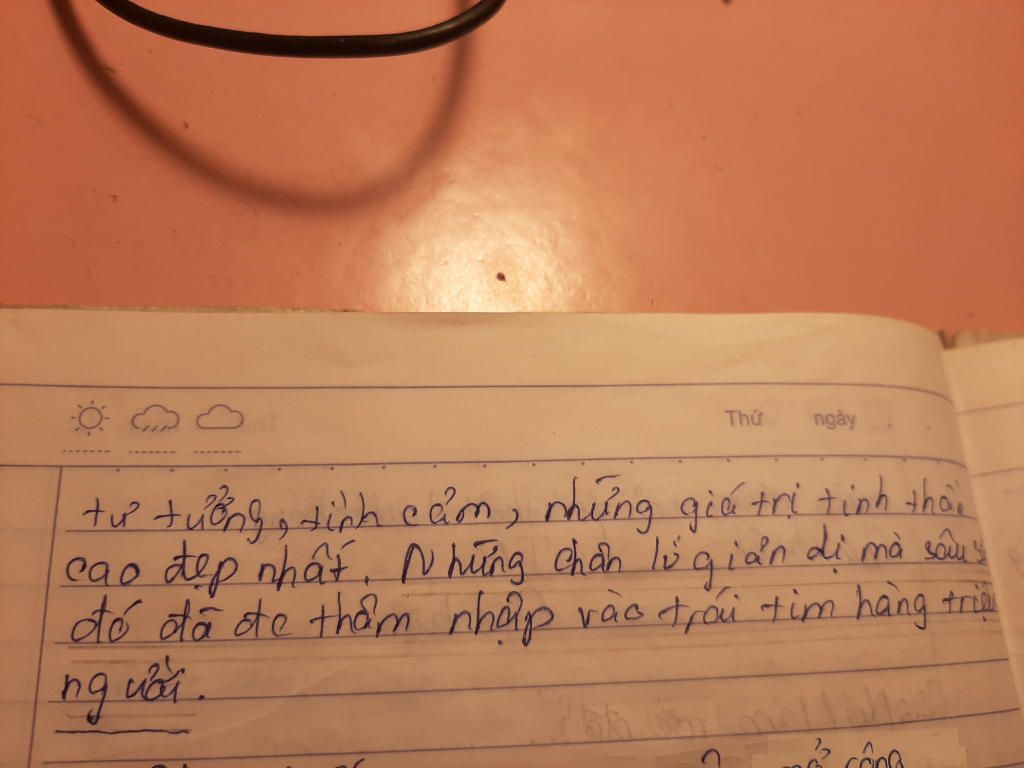 Thứ ngày
tư tưởng, tình cảm, những giá trị tinh thần
cao đẹp nhất. Những chân lí giản dị mà sâu
đó đã đc thâm nhập vào trái tim hàng triệu
người.
mở công